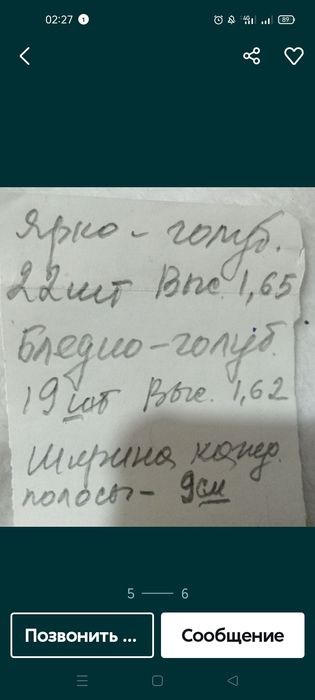 02:27 1 4G 89
Ярко - голуб.
22шт Выс. 1,65
Бледно-голуб.
19 шт Выс. 1,62
Ширина кажд.
полосы - 9см
5 — 6
Позвонить ...
Сообщение